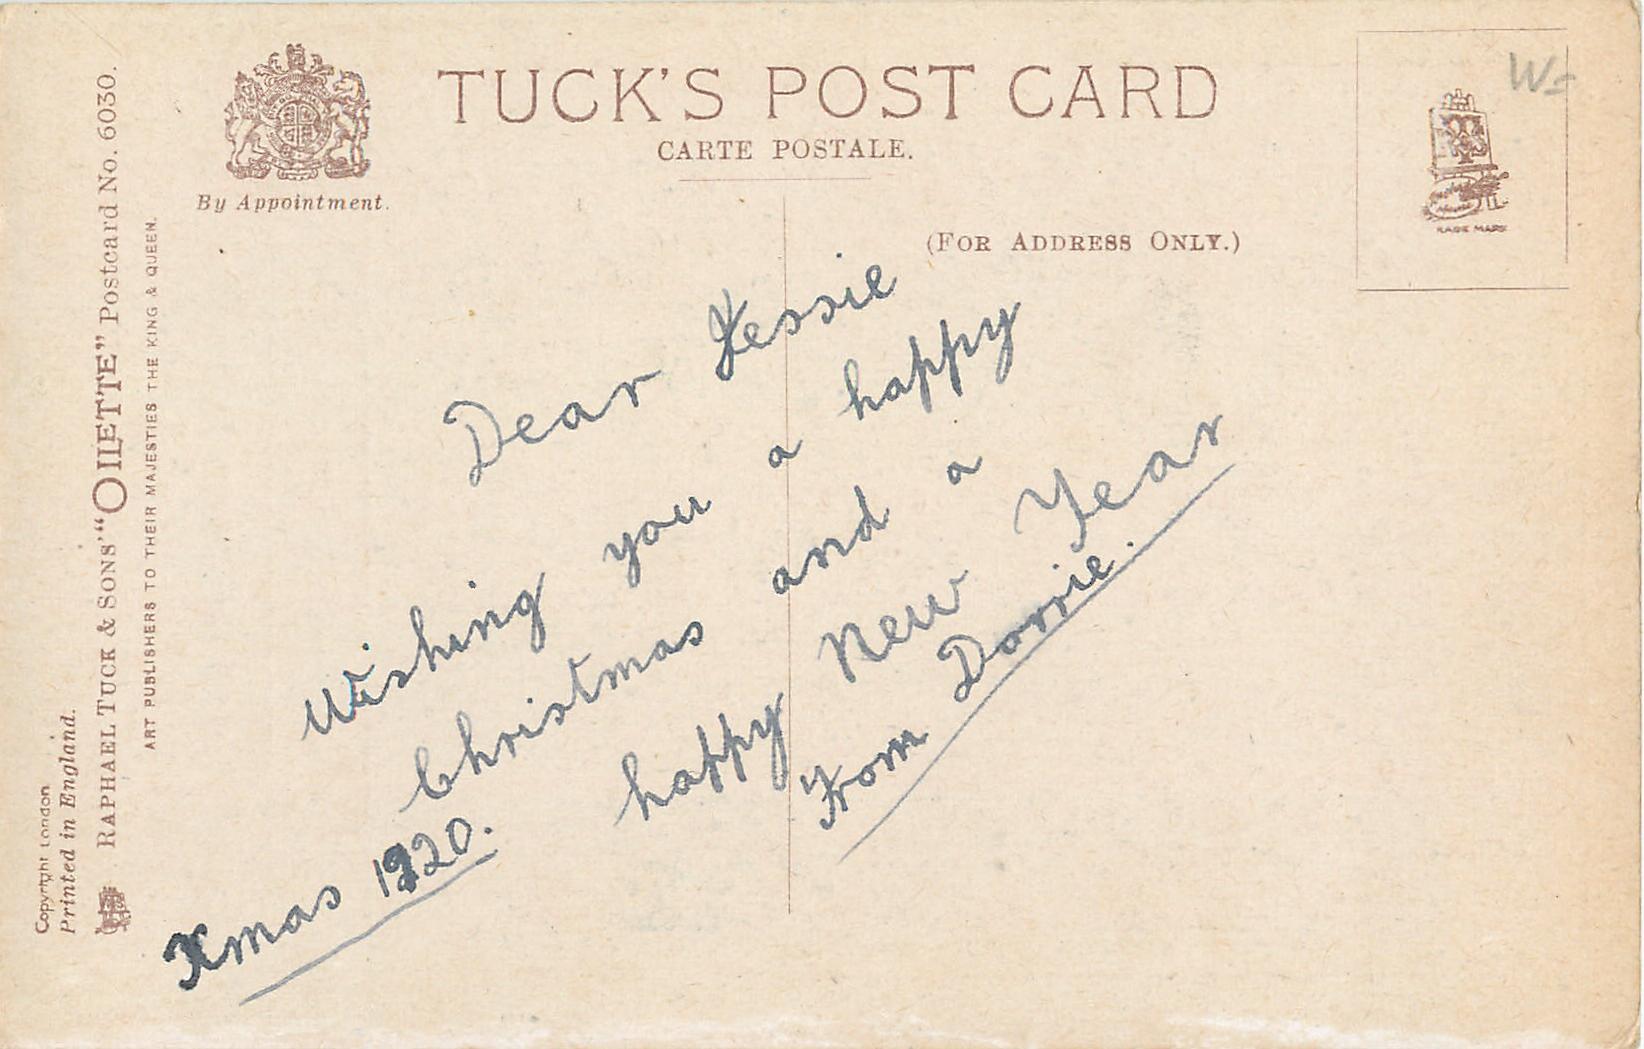 TUCK'S POST CARD
CARTE POSTALE.
By Appointment.
(FOR ADDRESS ONLY.)
W=
TRADE MARK
Copyright London
Printed in England.
RAPHAEL TUCK & SONS' "OILETTE" Postcard No. 6030.
ART PUBLISHERS TO THEIR MAJESTIES THE KING & QUEEN.
Dear Jessie
Wishing you a happy
Christmas and a
happy New Year
From Dorrie.
Xmas 1920.